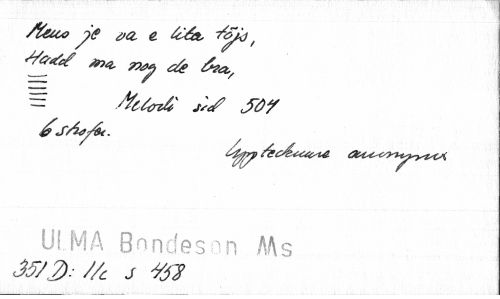 Mens je va e lita töjs,
Hadd ma nog de bra,
Melodi sid 504
6 strofer.
Upptecknare anonym
ULMA Bondeson Ms
351 D: 11c s 458